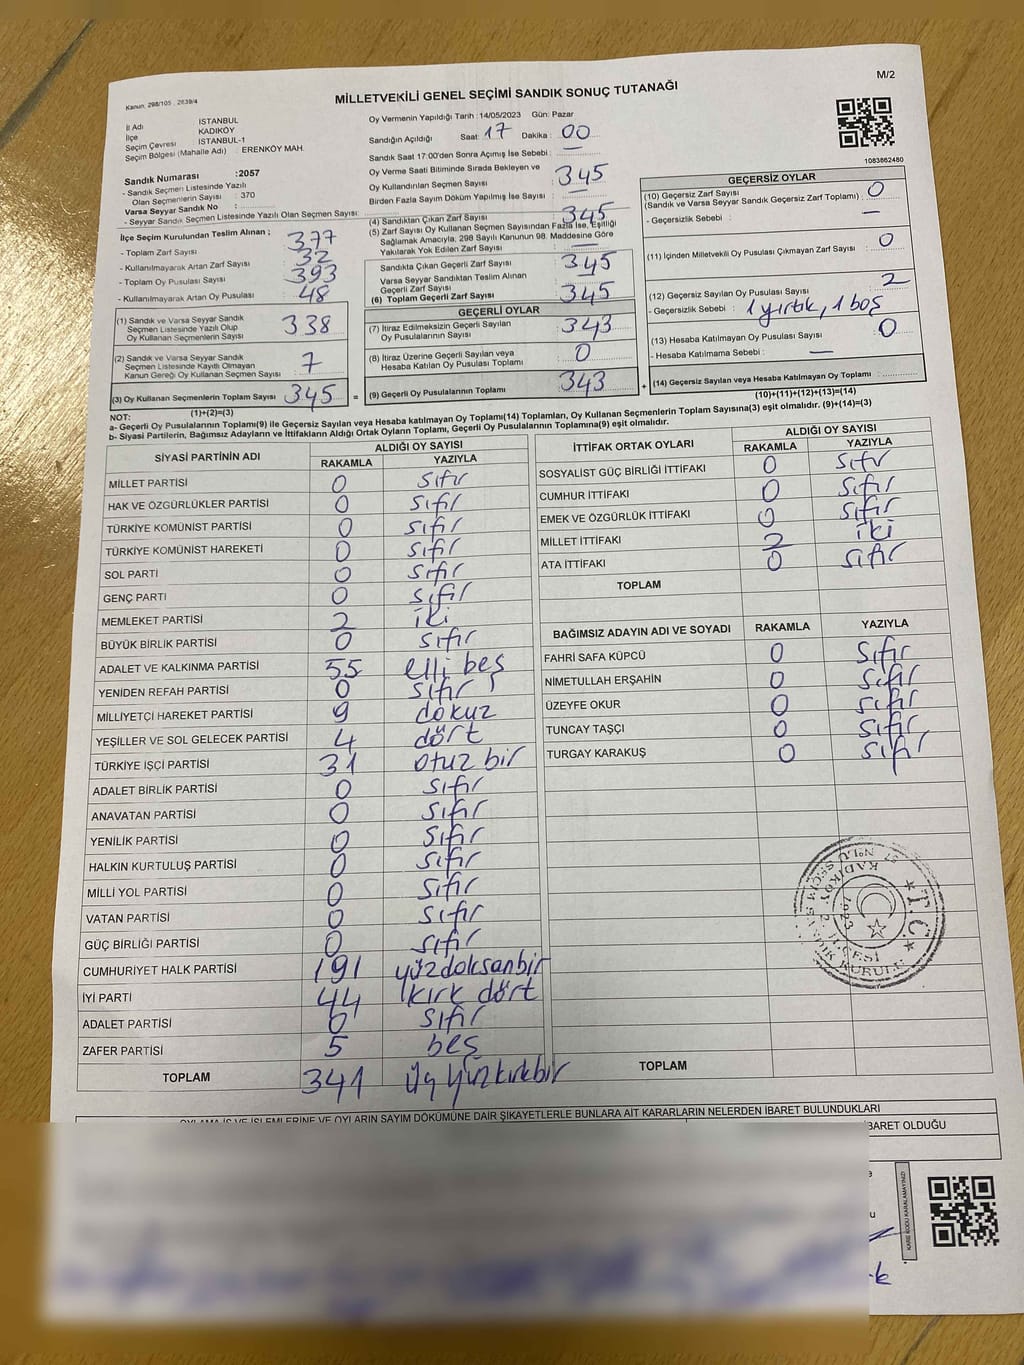 Kanun, 298/105 , 2839/4
M/2
MİLLETVEKİLİ GENEL SEÇİMİ SANDIK SONUÇ TUTANAĞI
İl Adı İSTANBUL
İlçe KADIKÖY
Seçim Çevresi İSTANBUL-1
Seçim Bölgesi (Mahalle Adı) : ERENKÖY MAH.
Oy Vermenin Yapıldığı Tarih : 14/05/2023 Gün: Pazar
Sandığın Açıldığı Saat: 17 Dakika : 00
Sandık Saat 17:00'den Sonra Açımış İse Sebebi : —
Oy Verme Saati Bitiminde Sırada Bekleyen ve
Oy Kullandırılan Seçmen Sayısı : 345
Birden Fazla Sayım Döküm Yapılmış İse Sayısı : —
1083862480
Sandık Numarası :2057
- Sandık Seçmen Listesinde Yazılı
Olan Seçmenlerin Sayısı : 370
Varsa Seyyar Sandık No :
- Seyyar Sandık Seçmen Listesinde Yazılı Olan Seçmen Sayısı:
İlçe Seçim Kurulundan Teslim Alınan ;
- Toplam Zarf Sayısı : 377
- Kullanılmayarak Artan Zarf Sayısı : 32
- Toplam Oy Pusulası Sayısı : 393
- Kullanılmayarak Artan Oy Pusulası : 48
(1) Sandık ve Varsa Seyyar Sandık
Seçmen Listesinde Yazılı Olup
Oy Kullanan Seçmenlerin Sayısı : 338
(2) Sandık ve Varsa Seyyar Sandık
Seçmen Listesinde Kayıtlı Olmayan
Kanun Gereği Oy Kullanan Seçmen Sayısı : 7
(3) Oy Kullanan Seçmenlerin Toplam Sayısı : 345
(1)+(2)=(3)
(4) Sandıktan Çıkan Zarf Sayısı : 345
(5) Zarf Sayısı Oy Kullanan Seçmen Sayısından Fazla İse, Eşitliği
Sağlamak Amacıyla, 298 Sayılı Kanunun 98. Maddesine Göre
Yakılarak Yok Edilen Zarf Sayısı : —
Sandıkta Çıkan Geçerli Zarf Sayısı : 345
Varsa Seyyar Sandıktan Teslim Alınan
Geçerli Zarf Sayısı :
(6) Toplam Geçerli Zarf Sayısı : 345
GEÇERLİ OYLAR
(7) İtiraz Edilmeksizin Geçerli Sayılan
Oy Pusulalarının Sayısı : 343
(8) İtiraz Üzerine Geçerli Sayılan veya
Hesaba Katılan Oy Pusulası Toplamı : 0
= (9) Geçerli Oy Pusulalarının Toplamı : 343
GEÇERSİZ OYLAR
(10) Geçersiz Zarf Sayısı : 0
(Sandık ve Varsa Seyyar Sandık Geçersiz Zarf Toplamı)
- Geçersizlik Sebebi : —
(11) İçinden Milletvekili Oy Pusulası Çıkmayan Zarf Sayısı : 0
(12) Geçersiz Sayılan Oy Pusulası Sayısı : 2
- Geçersizlik Sebebi : 1 yırtık, 1 boş
(13) Hesaba Katılmayan Oy Pusulası Sayısı : 0
- Hesaba Katılmama Sebebi : —
+ (14) Geçersiz Sayılan veya Hesaba Katılmayan Oy Toplamı :
(10)+(11)+(12)+(13)=(14)
NOT:
a- Geçerli Oy Pusulalarının Toplamı(9) ile Geçersiz Sayılan veya Hesaba katılmayan Oy Toplamı(14) Toplamları, Oy Kullanan Seçmenlerin Toplam Sayısına(3) eşit olmalıdır. (9)+(14)=(3)
b- Siyasi Partilerin, Bağımsız Adayların ve İttifakların Aldığı Ortak Oyların Toplamı, Geçerli Oy Pusulalarının Toplamına(9) eşit olmalıdır.
SİYASİ PARTİNİN ADI ALDIĞI OY SAYISI
RAKAMLA YAZIYLA
MİLLET PARTİSİ 0 sıfır
HAK VE ÖZGÜRLÜKLER PARTİSİ 0 sıfır
TÜRKİYE KOMÜNİST PARTİSİ 0 sıfır
TÜRKİYE KOMÜNİST HAREKETİ 0 sıfır
SOL PARTİ 0 sıfır
GENÇ PARTİ 0 sıfır
MEMLEKET PARTİSİ 2 iki
BÜYÜK BİRLİK PARTİSİ 0 sıfır
ADALET VE KALKINMA PARTİSİ 55 elli beş
YENİDEN REFAH PARTİSİ 0 sıfır
MİLLİYETÇİ HAREKET PARTİSİ 9 dokuz
YEŞİLLER VE SOL GELECEK PARTİSİ 4 dört
TÜRKİYE İŞÇİ PARTİSİ 31 otuz bir
ADALET BİRLİK PARTİSİ 0 sıfır
ANAVATAN PARTİSİ 0 sıfır
YENİLİK PARTİSİ 0 sıfır
HALKIN KURTULUŞ PARTİSİ 0 sıfır
MİLLİ YOL PARTİSİ 0 sıfır
VATAN PARTİSİ 0 sıfır
GÜÇ BİRLİĞİ PARTİSİ 0 sıfır
CUMHURİYET HALK PARTİSİ 191 yüzdoksanbir
İYİ PARTİ 44 kırk dört
ADALET PARTİSİ 0 sıfır
ZAFER PARTİSİ 5 beş
TOPLAM 341 üç yüz kırkbir
İTTİFAK ORTAK OYLARI ALDIĞI OY SAYISI
RAKAMLA YAZIYLA
SOSYALİST GÜÇ BİRLİĞİ İTTİFAKI 0 sıfır
CUMHUR İTTİFAKI 0 sıfır
EMEK VE ÖZGÜRLÜK İTTİFAKI 0 sıfır
MİLLET İTTİFAKI 2 iki
ATA İTTİFAKI 0 sıfır
TOPLAM
BAĞIMSIZ ADAYIN ADI VE SOYADI RAKAMLA YAZIYLA
FAHRİ SAFA KÜPCÜ 0 sıfır
NİMETULLAH ERŞAHİN 0 sıfır
ÜZEYFE OKUR 0 sıfır
TUNCAY TAŞÇI 0 sıfır
TURGAY KARAKUŞ 0 sıfır
T.C.
KADIKÖY 2. İLÇESİ
SEÇİM SANDIK KURULU
1923
TOPLAM
OYLAMA İŞ VE İŞLEMLERİNE VE OYLARIN SAYIM DÖKÜMÜNE DAİR ŞİKAYETLERLE BUNLARA AİT KARARLARIN NELERDEN İBARET BULUNDUKLARI
İBARET OLDUĞU
KARE KODU KARALAMAYINIZ!